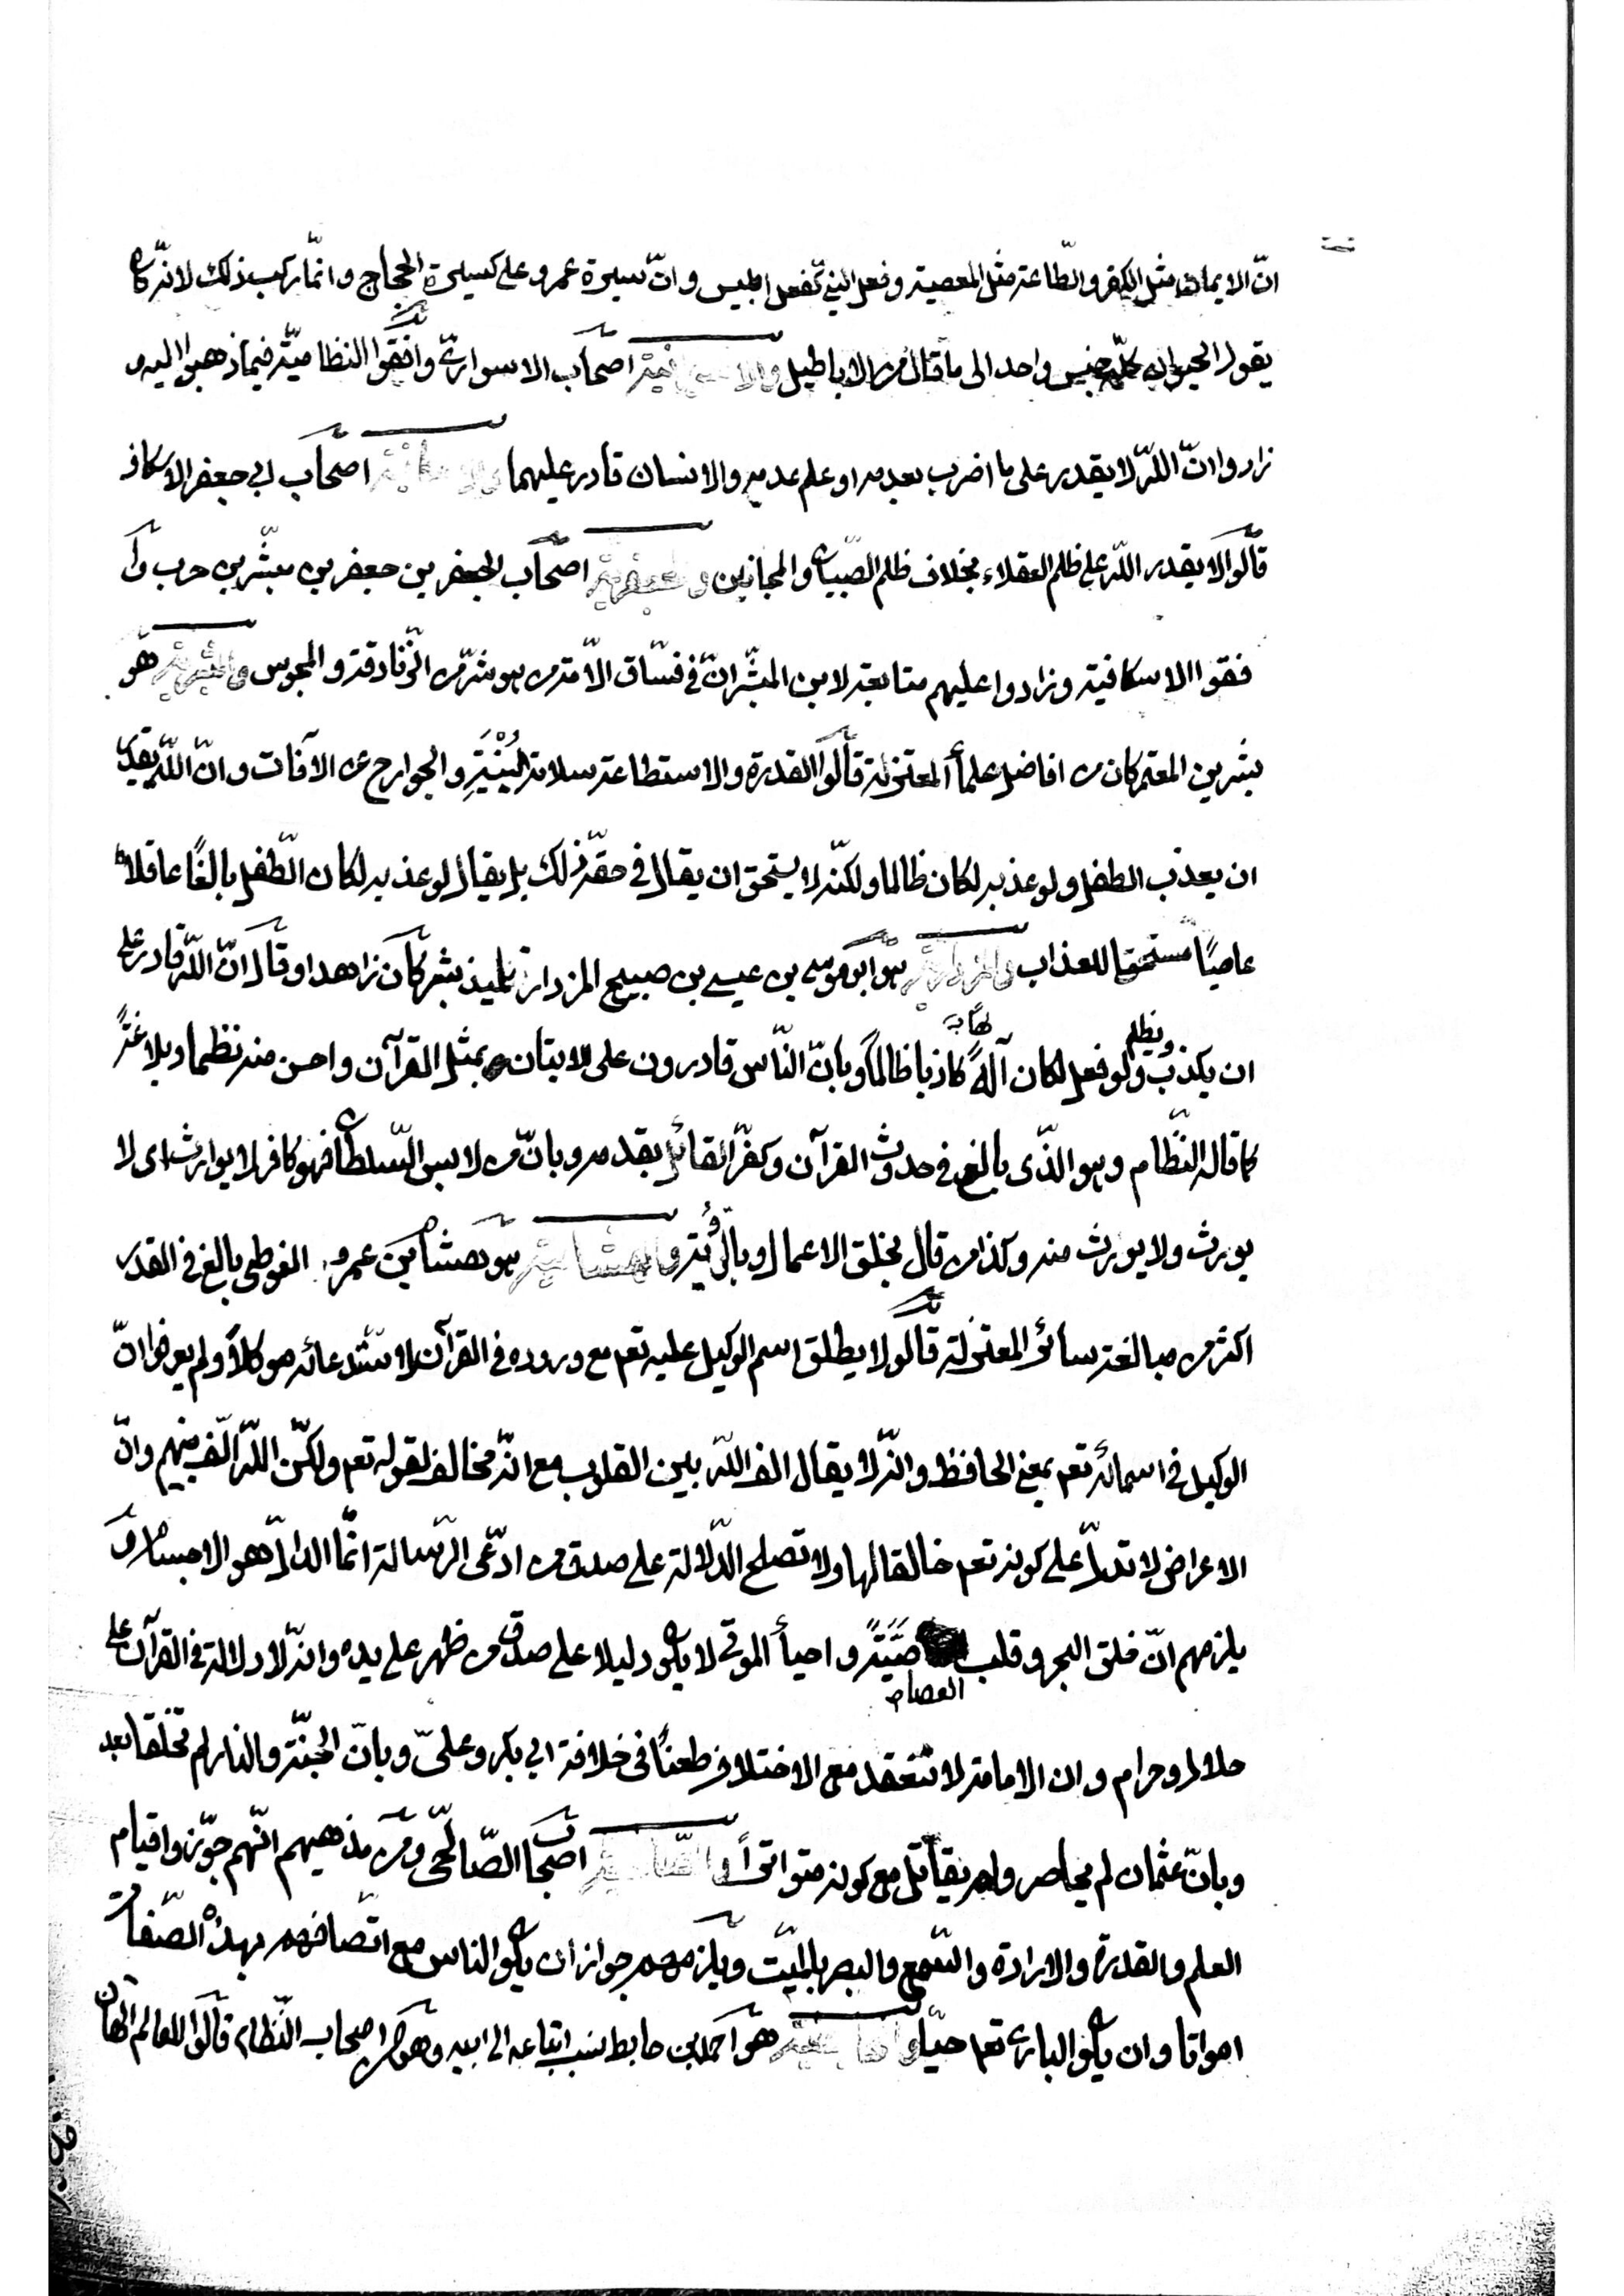 انّ الايمان مثل الكفر والطّاعة مثل المعصية وفعل النبي كفعل ابليس وانّ سيرة عمر وعلي كسيرة الحجاج وانّما ركب ذلك لانّه كان
يقول الحيوان كلّه جنس واحد الى ما قال من الاباطيل اصحاب الاسواري وافقوا النظاميّة فيما ذهبوا اليه و
زادوا انّ اللّه لا يقدر على ما اخبر بعدمه او علم عدمه والانسان قادر عليهما اصحاب ابي جعفر الاسكاف
قالوا لا يقدر اللّه على ظلم العقلاء بخلاف ظلم الصّبيان والمجانين والجعفرية اصحاب الجعفرين جعفر بن مبشّر بن حرب وا
فقوا الاسكافية وزادوا عليهم متابعة لابن المبشّر انّ في فسّاق الامّة من هو شرّ من الزّنادقة والمجوس والبشرية هو
بشر بن المعتمر كان من افاضل علمأ المعتزلة قالوا القدرة والاستطاعة سلامة البُنْيَةِ والجوارح عن الآفات وانّ اللّه يقدر
ان يعذب الطفل ولو عذبه لكان ظالما ولكنّه لا يستحق ان يقال في حقّه ذلك بل يقال لو عذبه لكان الطّفل بالغًا عاقلا
عاصيًا مستحقا للعذاب والمزدارية هو ابو موسى بن عيسى بن صبيح المزدار تلميذ بشر كان زاهدا وقال انّ اللّه قادر على
ان يكذب ويظلم ولو فعل لكان آلهًا كاذبا ظالمًا وبانّ النّاس قادرون على الاتيان بمثل القرآن واحسن منه نظما وبلاغةً
كما قاله النظّام وهو الّذي بالغ في حدوث القرآن وكفّر القائل بقدمه وبانّ من لابس السّلطان فهو كافر لا يوارث اى لا
يورث ولا يورث منه وكذا من قال بخلق الاعمال وبالرّؤية والهشامية هو هشام بن عمرو الفوطي بالغ في القدر
اكثر من مبالغة سائر المعتزلة قالوا لا يطلق اسم الوكيل عليه تعم مع وروده في القرآن لاستدعائه موكلاً ولم يعرفوا انّ
الوكيل في اسمائه تعم بمعنى الحافظ وانّه لا يقال الف اللّه بين القلوب مع انّه مخالف لقوله تعم ولكنّ اللّه الّف بينهم وانّ
الاعراض لا تدلّ على كونه تعم خالقا لها ولا تصلح الدّلالة على صدق من ادّعى الرّسالة انّما الدالّ هو الاجسام و
يلزمهم انّ فلق البحر وقلب العصا حيّةً واحيأ الموتى لا يكون دليلا على صدق من ظهر على يده وانّه لا دلالة في القرآن على
حلال وحرام وان الامامة لا تنعقد مع الاختلاف طعنًا في خلافة ابي بكر وعليّ وبانّ الجنّة والنار لم تخلقا بعد
وبانّ عثمان لم يحاصر ولم يقاتل مع كونه متواترًا والصّالحية اصحاب الصّالحي ومن مذهبهم انّهم جوّزوا قيام
العلم والقدرة والارادة والسّمع والبصر بالميّت ويلزمهم جواز ان يكون الناس مع اتّصافهم بهذه الصّفات
امواتا وان يكون البارئ تعم حيّا هو احمد بن حابط نسب اتباعه الى ابيه وهو من اصحاب النّظام قالوا للعالم الهان